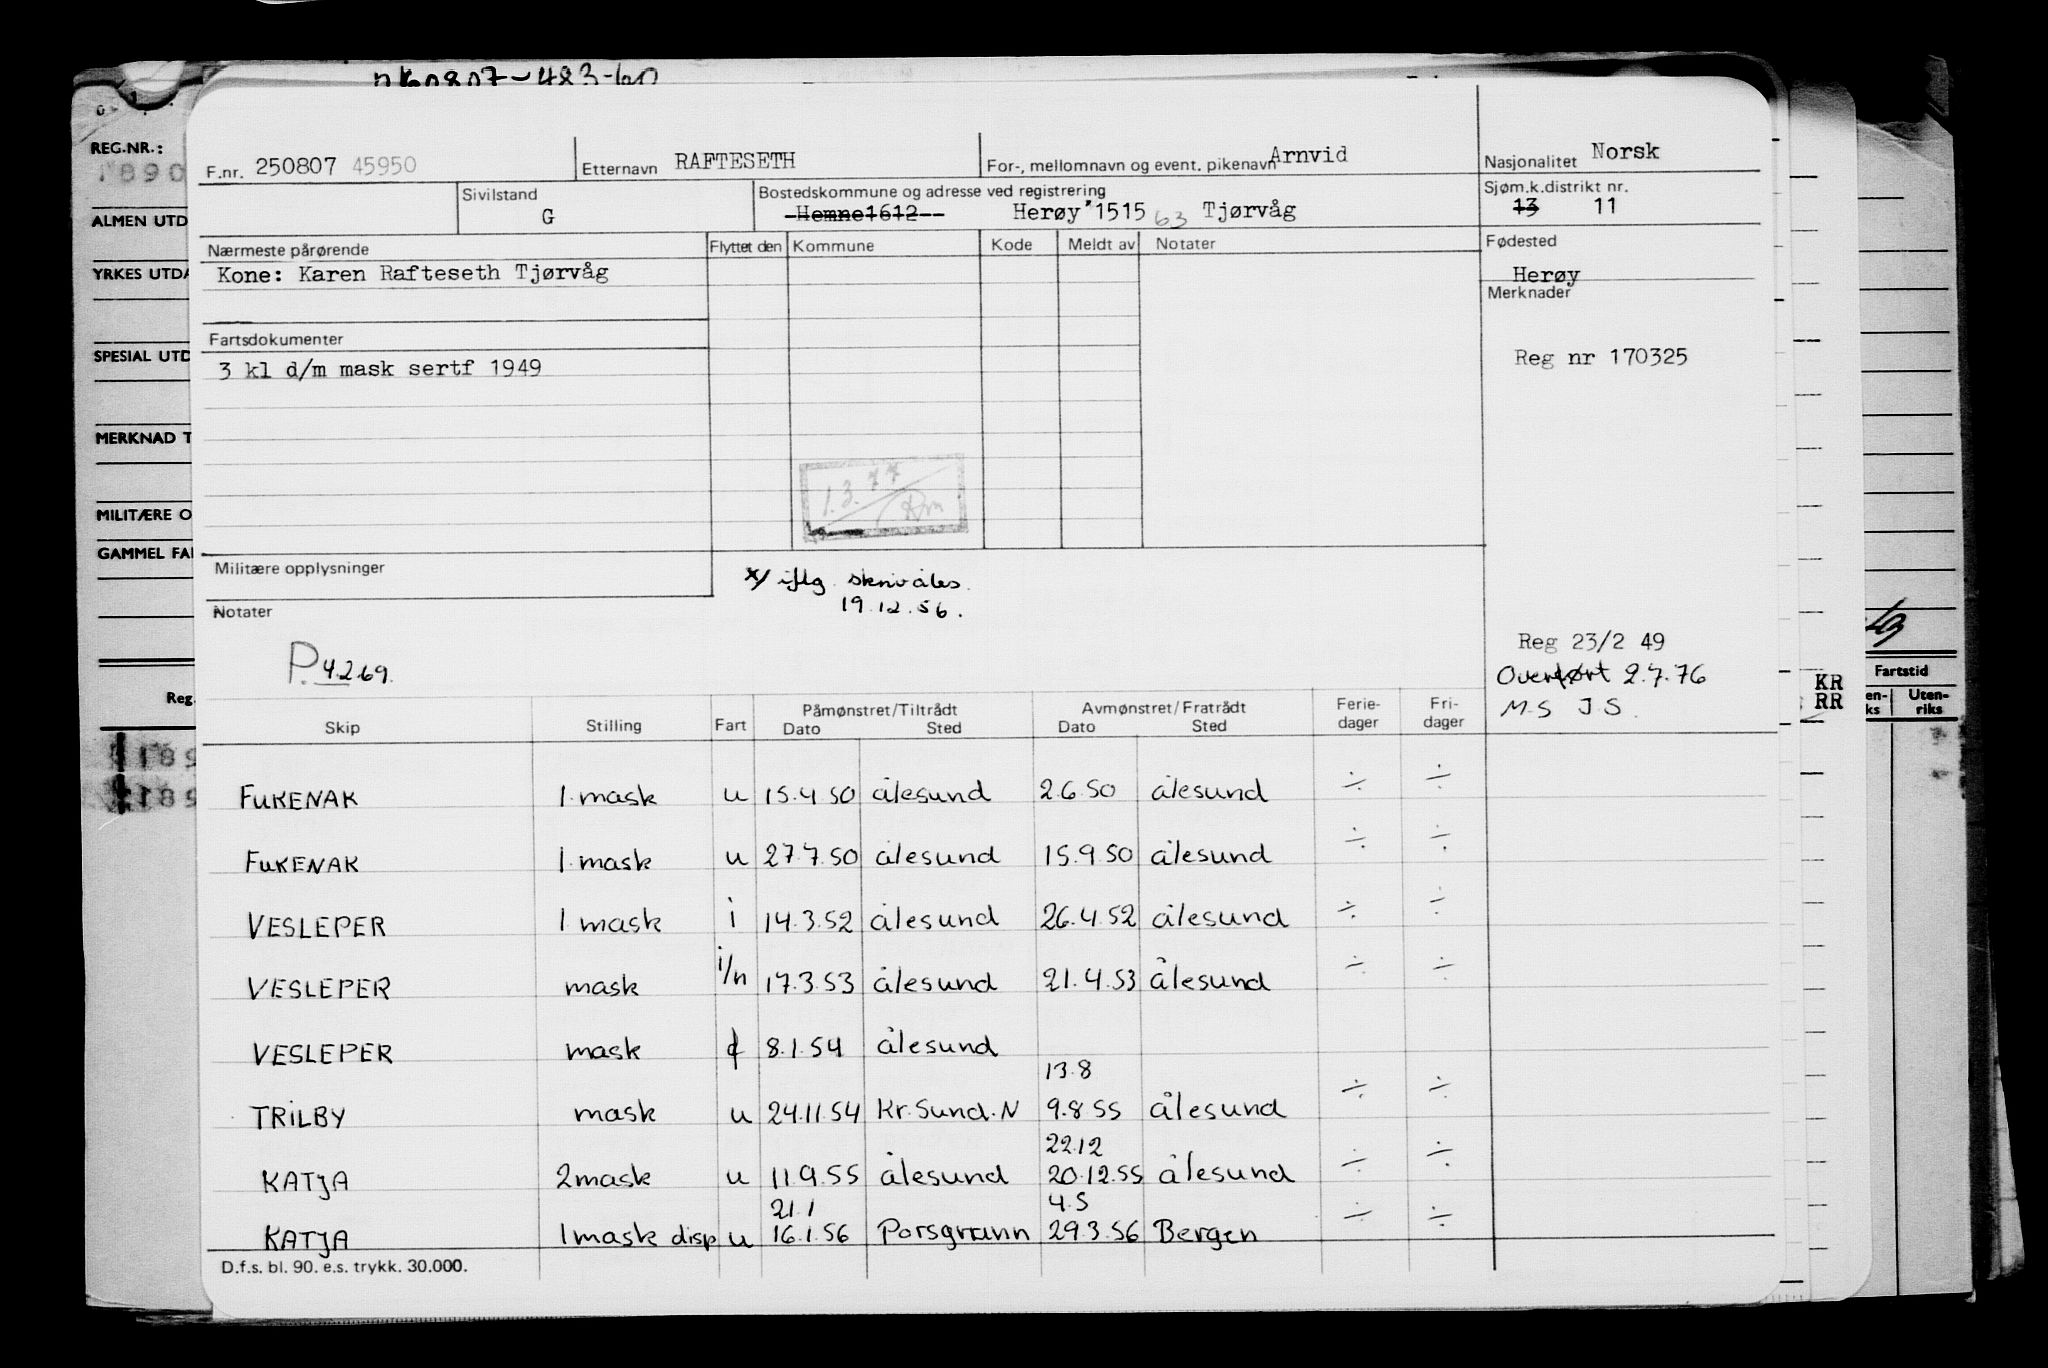 REG.NR.:
ALMEN UTD
YRKES UTDA
SPESIAL UTD
MERKNAD T
MILITÆRE O
GAMMEL FA
Reg.
F.nr. 250807 45950
Etternavn RAFTESETH
For-, mellomnavn og event. pikenavn Arnvid
Nasjonalitet Norsk
Sivilstand
G
Bostedskommune og adresse ved registrering
Hemne 1612 Herøy 1515 63 Tjørvåg
Sjøm.k.distrikt nr.
13 11
Nærmeste pårørende
Kone: Karen Rafteseth Tjørvåg
Flyttet den Kommune Kode Meldt av Notater
Fødested
Herøy
Merknader
Fartsdokumenter
3 kl d/m mask sertf 1949
Reg nr 170325
1.3.77
Rm
Militære opplysninger
x/ iflg. skriv åles.
19.12.56.
Notater
P. 4.2.69.
Reg 23/2 49
Overført 2.7.76
M.S J S.
KR
RR
Fartstid
en-ks Uten-riks
Skip Stilling Fart Påmønstret/Tiltrådt Dato Sted Avmønstret/Fratrådt Dato Sted Ferie-dager Fri-dager
FUKENAK 1. mask u 15.4 50 ålesund 2.6.50 ålesund ÷ ÷
FUKENAK 1. mask u 27.7.50 ålesund 15.9.50 ålesund ÷ ÷
VESLEPER 1 mask i 14.3.52 ålesund 26.4.52 ålesund ÷ ÷
VESLEPER mask i/n 17.3.53 ålesund 21.4.53 ålesund ÷ ÷
VESLEPER mask 8.1.54 ålesund
13.8
TRILBY mask u 24.11.54 Kr.Sund.N 9.8 55 ålesund ÷ ÷
22.12
KATJA 2mask u 11.9.55 ålesund 20.12.55 ålesund ÷ ÷
21.1 4.5
KATJA 1mask disp u 16.1.56 Porsgrunn 29.3.56 Bergen ÷ ÷
D.f.s. bl. 90. e.s. trykk. 30.000.